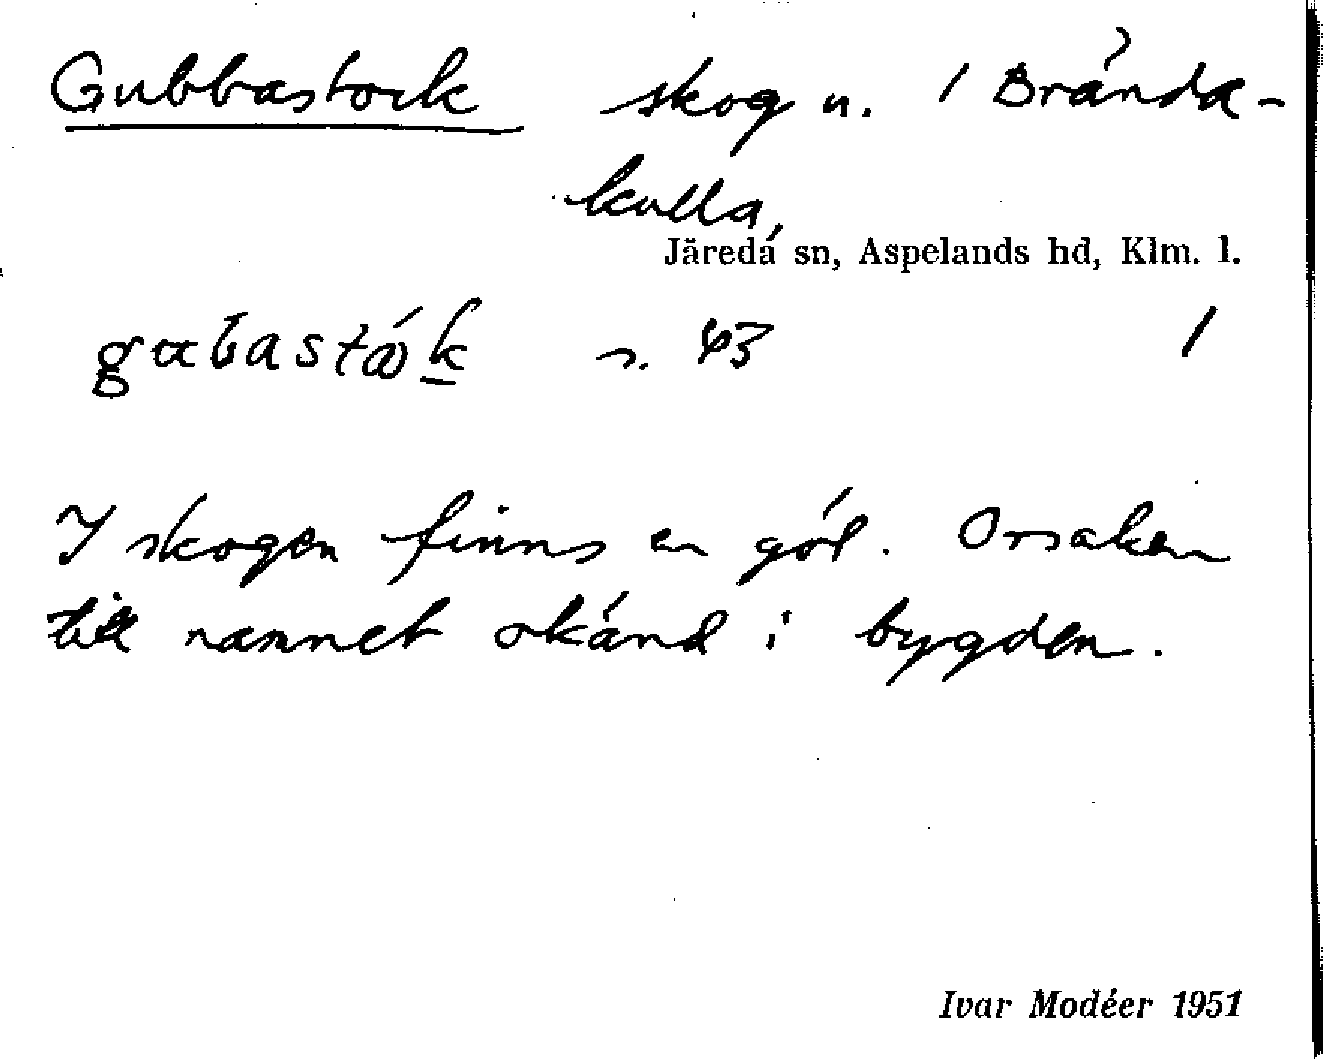 Gubbastock skog n. / Brända-
kulla,
Järeda sn, Aspelands hd, Klm. l.
gubastǻk s. 43 /
I skogen finns en göl. Orsaken
till namnet okänd i bygden.
Ivar Modéer 1951